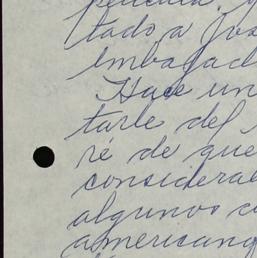 película. 
tado a Jos
embajad
Hace un
tarle del
ré de que
considerar
algunos c
americano